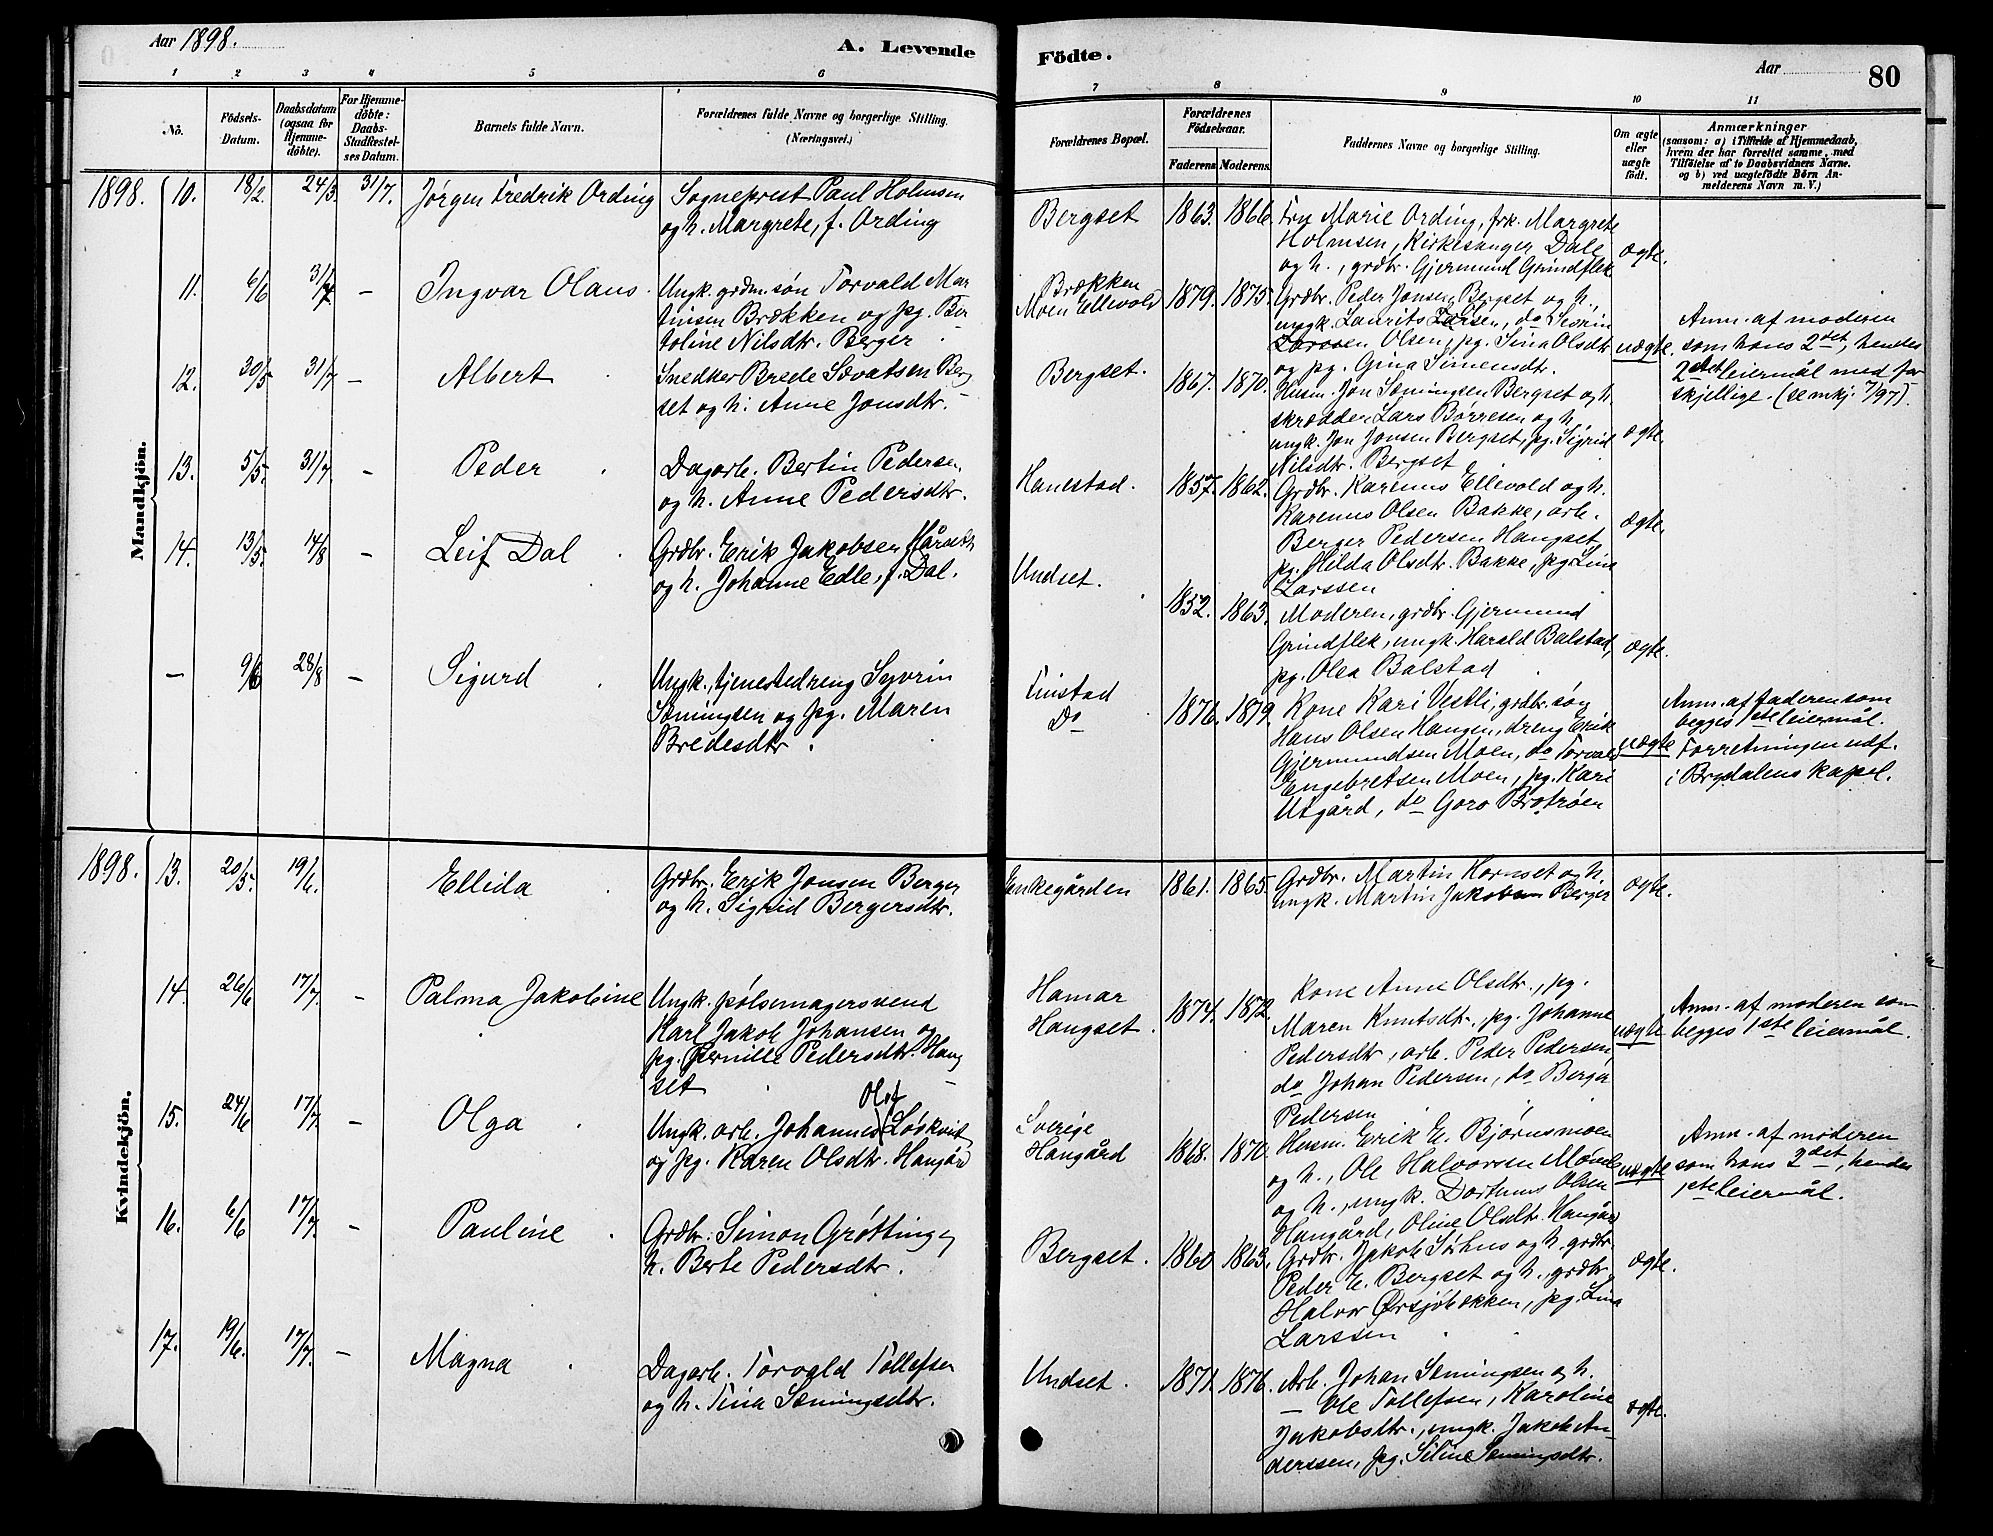 Aar 1898.
A. Levende
Födte.
Aar
80
1 2 3 4 5 6 7 8 9 10 11
No.
Födsels-Datum.
Daabsdatum (ogsaa for Hjemme-döbte).
For Hjemme-döbte: Daabs-Stadfæstel-ses Datum.
Barnets fulde Navn.
Forældrenes fulde Navne og borgerlige Stilling.
(Næringsvei.)
Forældrenes Bopæl.
Forældrenes Födselsaar.
Faderens Moderens.
Faddernes Navne og borgerlige Stilling.
Om ægte eller uægte født.
Anmærkninger
(saasom: a) i Tilfælde af Hjemmedaab,
hvem der har forrettet samme, med
Tilföielse af to Daabsvidners Navne.
og b) ved uægtefödte Börn An-
melderens Navn m. V.)
Mandkjön.
1898. 10. 18/2. 24/3 31/7. Jørgen Fredrik Ording
Sogneprest Paul Holmsen
og h. Margrete, f. Ording
Bergset 1863. 1866.
Fru Marie Ording, frk. Margrete
Holmsen, Kirkesanger Dale
og h., grdbr. Gjermund Grindflek
ægte.
11. 6/6 31/7 – Ingvar Olaus.
Ungk. grdm. søn Torvald Mar
tinsen Brækken og pg. Ber
toline Nilsdtr. Berger
Brækken
Moen Ellevold
1879. 1875.
Grdbr. Peder Jonsen Bergset og h.,
ungk. Laurits Larsen, do Sevrin
Larssen Olsen, pg. Sina Olsdtr
og pg. Gina Simensdtr.
uægte.
Anm. af moderen
som hans 2det, hendes
2det leiermål med for
skjellige. (se mkj. 7/97).
12. 30/5 31/7 – Albert
Snedker Brede Sevatsen Berg
set og h. Anne Jonsdtr.
Bergset. 1867. 1870.
Husm. Jon Sæmingsen Bergset og h.
skrædder Lars Børresen og h.
ungk. Jon Jonsen Bergset, pg. Sigrid
Nilsdtr. Bergset
ægte.
13. 5/5. 31/7. – Peder
Dagarb. Bertin Pedersen
og h. Anne Pedersdtr.
Hanestad. 1857. 1862.
Grdbr. Karenus Ellevold og h.
Karenus Olsen Bakke, arb.
Berger Pedersen Hangset
pg. Hilda Olsdtr. Bakke, pg. Lina
Larssen
ægte.
14. 13/5. 14/8 – Leif Dal
Grdbr. Erik Jakobsen Hårset
og h. Johanne Edle, f. Dal.
Undset. 1852. 1863.
Moderen, grdbr. Gjermund
Grindflek, ungk. Harald Balstad,
pg. Olea Balstad
ægte.
– 9/6 28/8 – Sigurd
Ungk., tjenestedreng Syvrin
Sæmingsen og pg. Maren
Bredesdtr.
Finstad
Do
1876. 1879.
Kone Kari Vestli, grdbr. søn
Hans Olsen Hangen, dreng Erik
Gjermundsen Moen, do Torvald
Engebretsen Moen, pg. Kari
Utgård, do Goro Brotrøen
uægte
Anm. af faderen som
begges 1ste leiermål.
Forretningen udf.
i Brydalens kapel.
Kvindekjön.
1898. 13. 20/5. 19/6. Ellida
Grdbr. Erik Jonsen Berger
og h. Sigrid Bergersdtr.
Enkegården 1861. 1865.
Grdbr. Martin Hornset og h.
ungk. Martin Jakobsen Berger
ægte.
14. 26/6 17/7. – Palma Jakobine
Ungk. pølsemagersvend
Karl Jakob Johansen og
pg. Pernille Pedersdtr. Hang
set
Hamar
Hangset.
1874. 1872.
Kone Anne Olsdtr., pg.
Maren Knutsdtr., pg. Johanne
Pedersdtr, arb. Peder Pedersen,
do Johan Pedersen, do Berger
Pedersen
uægte
Anm. af moderen som
begges 1ste leiermål.
15. 24/6 17/7. – Olga
Olof
Ungk. arb. Johannes Løskvist
og pg. Karen Olsdtr. Hangård
Sverige
Hangård
1868. 1870.
Husm. Erik E. Bjørnsmoen
og h., Ole Halvorsen
og h., ungk. Dortinus Olsen
Hangård, Oline Olsdtr. Hangård
uægte
Anm. af moderen
som hans 2det, hendes
1ste leiermål.
16. 6/6 17/7. – Pauline
Grdbr. Simon Grøtting og
h. Berte Pedersdtr.
Bergset. 1860 1863.
Grdbr. Jakob Sørhus og h. grdbr.
Peder E. Bergset og h., grdbr.
Halvor Ørsjøbækken, pg. Lina
Larssen
ægte.
17. 19/6. 17/7. – Magna
Dagarb. Torvald Tollefsen
og h. Tina Sæmingsdtr.
Undset. 1871. 1876.
Arb. Johan Sæmingsen og h.
– Ole Tollefsen, Karoline
Jakobsdtr., ungk. Jakob An-
derssen, pg. Siline Sæmingsdtr.
ægte.